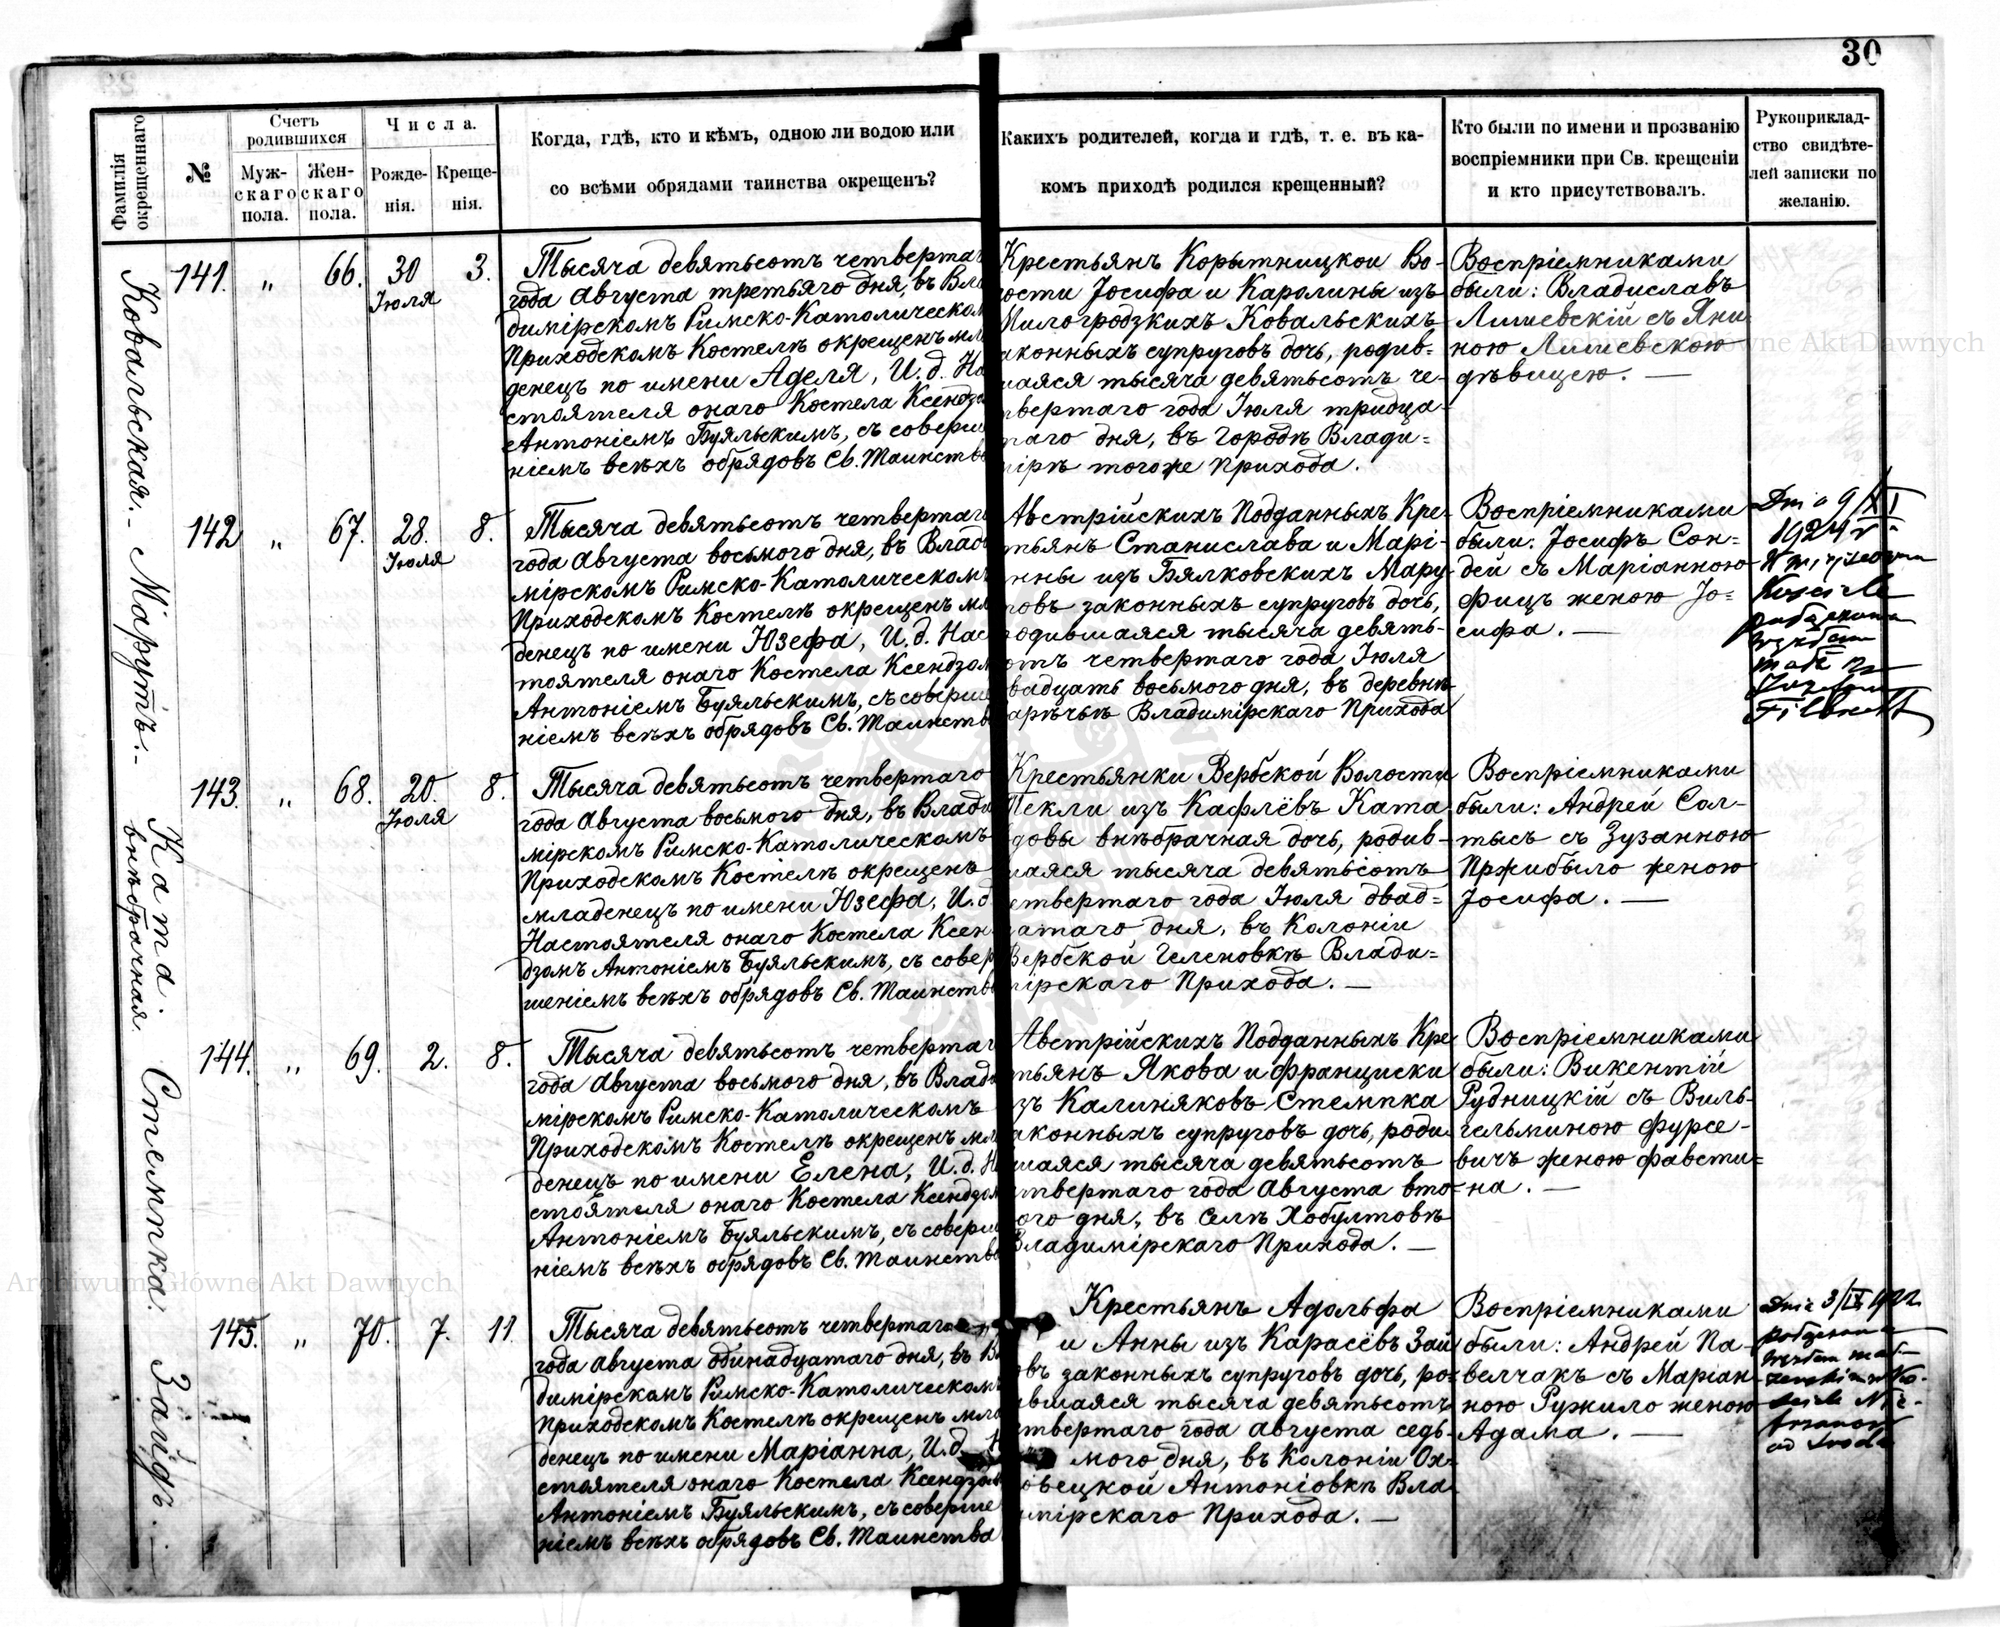 30
Фамилія окрещеннаго
№
Счетъ родившихся
Муж-скаго пола.
Жен-скаго пола.
Числа.
Рожде-нія.
Креще-нія.
Когда, гдѣ, кто и кѣмъ, одною ли водою или
со всѣми обрядами таинства окрещенъ?
Какихъ родителей, когда и гдѣ, т. е. въ ка-
комъ приходѣ родился крещенный?
Кто были по имени и прозванію
воспріемники при Св. крещеніи
и кто присутствовалъ.
Рукоприклад-
ство свидѣте-
лей записки по
желанію.
Ковальская.-
141. " 66. 30 Іюля 3.
Тысяча девятьсотъ четверта
года Августа третьяго дня, въ Вла
димірскомъ Римско-Католическом
Приходскомъ Костелѣ окрещенъ мла
денецъ по имени Аделя, И. д. На
стоятеля онаго Костела Ксендзо
Антоніемъ Буяльскимъ, съ соверш
ніемъ всѣхъ обрядовъ Св. Таинств
Крестьянъ Корытницкой Во-
лости Іосифа и Каролины изъ
Милогродзкихъ Ковальскихъ
аконныхъ супруговъ дочь, родив-
шаяся тысяча девятьсотъ че-
твертаго года Іюля тридца-
таго дня, въ городѣ Влади-
мірѣ тогоже Прихода.
Воспріемниками
были: Владиславъ
Лишевскій съ Яни-
ною Лишевскою
дѣвицею. —
Марутъ.-
142 " 67. 28. Іюля 8.
Тысяча девятьсотъ четвертаг
года Августа восьмого дня, въ Влад
мірскомъ Римско-Католическомъ
Приходскомъ Костелѣ окрещенъ мла
денецъ по имени Юзефа, И. д. Нас
тоятеля онаго Костела Ксендзом
Антоніемъ Буяльскимъ, съ соверше
ніемъ всѣхъ обрядовъ Св. Таинств
Австрійскихъ Подданныхъ Кре-
тьянъ Станислава и Марі-
нны изъ Бялковскихъ Мару-
овъ законныхъ супруговъ дочь,
одившаяся тысяча девять-
отъ четвертаго года Іюля
вадцать восьмого дня, въ деревнѣ
арѣчьѣ Владимірскаго Прихода
Воспріемниками
были: Іосифъ Сон-
дей съ Маріанною
Фицъ женою Іо-
сифа. —
Dnia 9/XI
1924 r
w
Kościele
Józefem
Filbrett
Ката внѣбрачная.
143. " 68. 20. Іюля 8.
Тысяча девятьсотъ четвертаго
года Августа восьмого дня, въ Влади
мірскомъ Римско-Католическомъ
Приходскомъ Костелѣ окрещенъ
младенецъ по имени Юзефа, И. д
Настоятеля онаго Костела Ксен
дзомъ Антоніемъ Буяльскимъ, съ совер
шеніемъ всѣхъ обрядовъ Св. Таинств
Крестьянки Вербской Волости
Текли изъ Кафлёвъ Ката
довы внѣбрачная дочь, родив-
шаяся тысяча девятьсотъ
етвертаго года Іюля двад-
атаго дня, въ Колоніи
Вербской Геленовкѣ Влади-
мірскаго Прихода. —
Воспріемниками
были: Андрей Сол-
тысъ съ Зузанною
Пржибыло женою
Іосифа. —
Стемпка.
144. " 69. 2. 8.
Тысяча девятьсотъ четвертаг
года Августа восьмого дня, въ Влад
мірскомъ Римско-Католическомъ
Приходскомъ Костелѣ окрещенъ мла
денецъ по имени Елена, И. д. Н
стоятеля онаго Костела Ксендзом
Антоніемъ Буяльскимъ, съ соверш
ніемъ всѣхъ обрядовъ Св. Таинства
Австрійскихъ Подданныхъ Кре-
тьянъ Якова и Франциски
зъ Калиняковъ Стемпка
аконныхъ супруговъ дочь, роди-
шаяся тысяча девятьсотъ
етвертаго года Августа вто-
ого дня, въ селѣ Хобултовѣ
Владимірскаго Прихода. —
Воспріемниками
были: Викентій
Рудницкій съ Виль-
гельминою Фурсе-
вичъ женою Фавсти-
на. —
Зайдъ.-
145. " 70. 7. 11.
Тысяча девятьсотъ четвертаго
года Августа одинадцатаго дня, въ Вл
димірскомъ Римско-Католическомъ
Приходскомъ Костелѣ окрещенъ мла
денецъ по имени Маріанна, И. д. Н
стоятеля онаго Костела Ксендзом
Антоніемъ Буяльскимъ, съ соверше
ніемъ всѣхъ обрядовъ Св. Таинства
Крестьянъ Адольфа
и Анны изъ Карасёвъ Зай
овъ законныхъ супруговъ дочь, ро-
ившаяся тысяча девятьсотъ
етвертаго года Августа седь-
мого дня, въ Колоніи Ох-
овецкой Антоніовкѣ Вла
имірскаго Прихода. —
Воспріемниками
были: Андрей Па-
велчакъ съ Маріан-
ною Ружило женою
Адама. —
Dnia 3/IX 1922
Archiwum Główne Akt Dawnych
Archiwum Główne Akt Dawnych